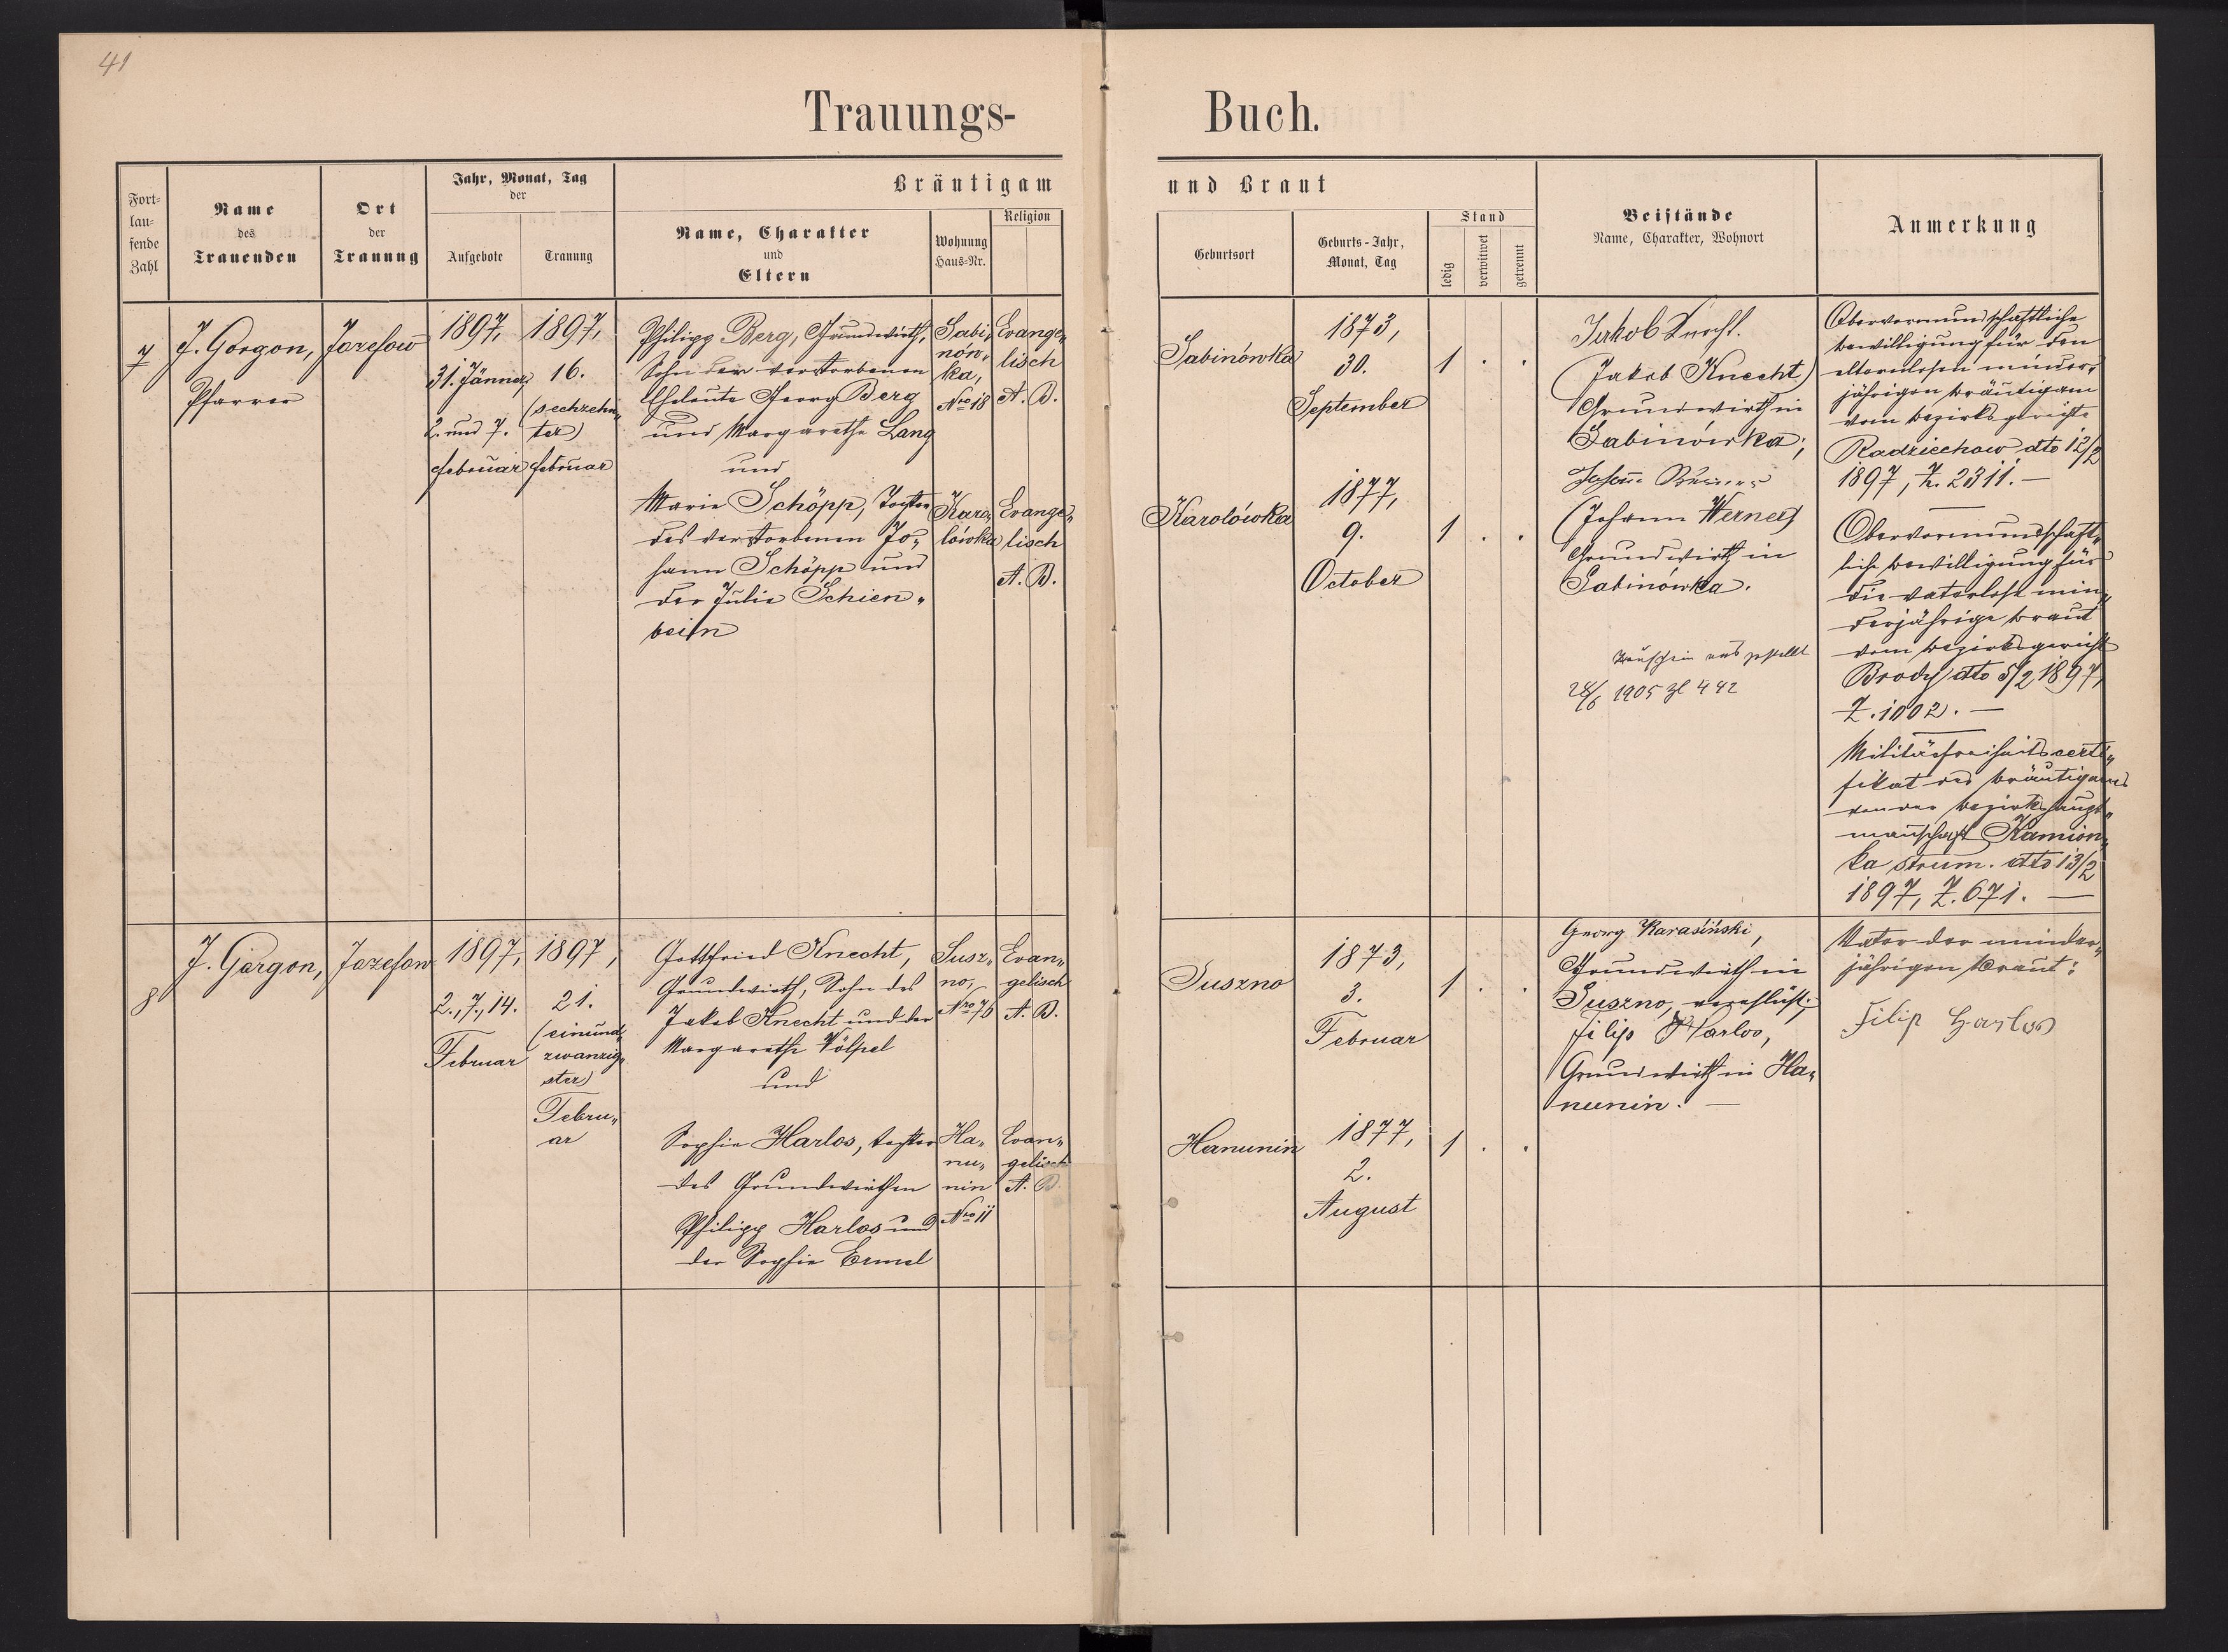 41
Trauungs-
Buch.
Fort-
lau-
fende
Zahl
Name
des
Trauenden
Ort
der
Trauung
Jahr, Monat, Tag
der
Aufgebote
Trauung
Bräutigam
Name, Charakter
und
Eltern
Wohnung
Haus-Nr.
Religion
und Braut
Geburtsort
Geburts-Jahr,
Monat, Tag
Stand
ledig
verwitwet
getrennt
Beistände
Name, Charakter, Wohnort
Anmerkung
7
J. Gorgon,
Pfarrer
Jozefow
1897,
31. Jänner,
2. und 7.
Februar
1897,
16.
(sechzehn„
ter)
Februar
Philipp Berg, Grundwirth,
Sohn der verstorbenen
Eheleute Georg Berg
und Margarethe Lang
und
Marie Schöpp, Tochter
des verstorbenen Jo„
hann Schöpp und
der Julie Schien„
bein
Sabi„
nów„
ka,
Nro 18
Karo„
lówka
Evange„
lisch
A. B.
Evange„
lisch
A. B.
Sabinówka
1873,
30.
September
1 . .
Karolówka
1877,
9.
October
1 . .
Jakob Knecht.
(Jakob Knecht)
Grundwirth in
Sabinówka;
Johann
(Johann Werner)
Grundwirth in
Sabinówka.
Trauschein ausgestellt
28/6 1905 Zl 442
Obervormundschaftliche
Bewilligung für den
elternlosen minder„
jährigen Bräutigam
vom Bezirksgerichte
Radziechow dto 12/2
1897, Z. 2311. —
Obervormundschaft„
liche Bewilligung für
die vaterlose min„
derjährige Braut
vom Bezirksgericht
Brody dto 5/2 1897,
Z. 1002. —
Militärfreiheitscerti„
fikat des Bräutigams
von der Bezirkshaupt„
mannschaft Kamion„
ka strum. dto 13/2
1897, Z. 671. —
8
J. Gorgon,
Jozefow
1897,
2., 7., 14.
Februar
1897,
21.
(einund„
zwanzig„
ster)
Febru„
ar
Gottfried Knecht,
Grundwirth, Sohn des
Jakob Knecht und der
Margarethe Völpel
und
Sophie Harlos, Tochter
des Grundwirthen
Philipp Harlos und
der Sophie Ermel
Susz„
no,
Nro 76
Ha„
nu„
nin
Nro 11
Evan„
gelisch
A. B.
Evan„
gelisch
A. B.
Suszno
1873,
3.
Februar
1 . .
Hanunin
1877,
2.
August
1 . .
Georg Karasiński,
Grundwirth in
Suszno,
Filip Harlos,
Grundwirth in Ha„
nunin. —
Vater der minder„
jährigen Braut:
Filip Harlos